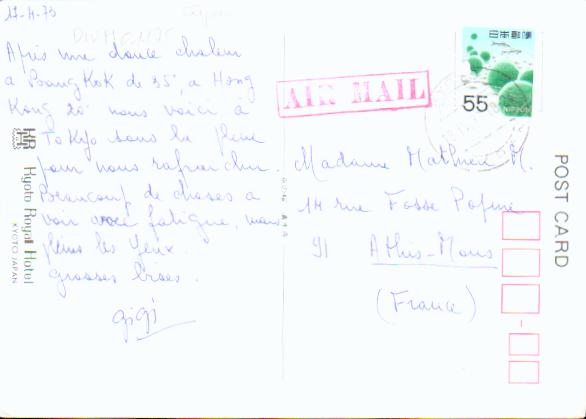 17-4-73
Après une douce chaleur
a BangKoK de 35°, a Hong
Kong 20° nous voici à
ToKyo sous la pluie
pour nous rafraichir.
Beaucoup de choses a
voir avec fatigue, mais
pleins les yeux.
grosses bises.
gigi
KR
Kyoto Royal Hotel
KYOTO JAPAN
AIR MAIL
日本郵便
55
NIPPON
POST CARD
Madame Mathieu M.
14 rue Fosse
91 Athis-Mons
(France)